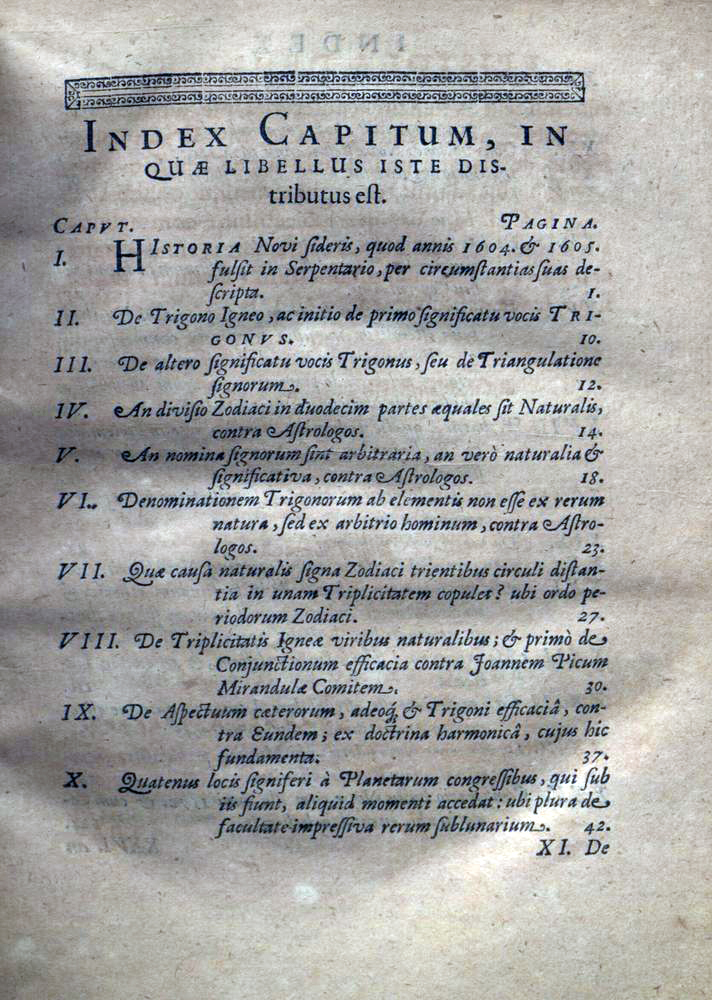 INDEX CAPITUM, IN
QUÆ LIBELLUS ISTE DIS-
tributus est.
CAPVT. PAGINA.
I. HISTORIA Novi sideris, quod annis 1604. & 1605.
fulsit in Serpentario, per circumstantias suas de-
scripta. 1.
II. De Trigono Igneo, ac initio de primo significatu vocis TRI-
GONVS. 10.
III. De altero significatu vocis Trigonus, seu de Triangulatione
signorum. 12.
IV. An divisio Zodiaci in duodecim partes æquales sit Naturalis,
contra Astrologos. 14.
V. An nomina signorum sint arbitraria, an verò naturalia &
significativa, contra Astrologos. 18.
VI. Denominationem Trigonorum ab elementis non esse ex rerum
natura, sed ex arbitrio hominum, contra Astro-
logos. 23.
VII. Quæ causa naturalis signa Zodiaci trientibus circuli distan-
tia in unam Triplicitatem copulet? ubi ordo pe-
riodorum Zodiaci. 27.
VIII. De Triplicitatis Igneæ viribus naturalibus; & primò de
Conjunctionum efficacia contra Joannem Picum
Mirandulæ Comitem. 30.
IX. De Aspectuum cæterorum, adeoq́; & Trigoni efficaciâ, con-
tra Eundem; ex doctrina harmonicâ, cujus hic
fundamenta. 37.
X. Quatenus locis signiferi à Planetarum congressibus, qui sub
iis fiunt, aliquid momenti accedat: ubi plura de
facultate impressiva rerum sublunarium. 42.
XI. De